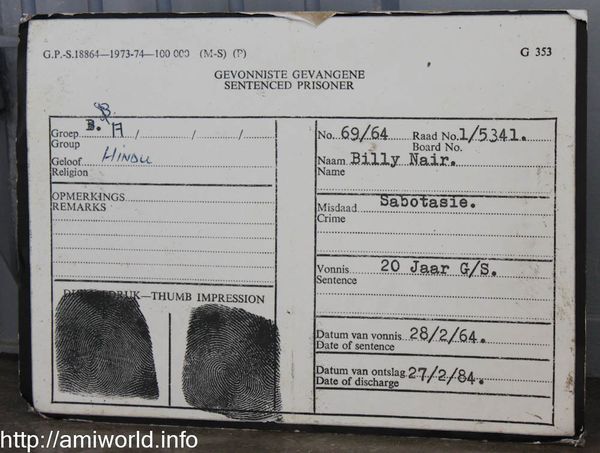 G.P.-S.18864—1973-74—100 000 (M-S) (P)
G 353
GEVONNISTE GEVANGENE
SENTENCED PRISONER
Groep B. B. A / / /
Group
Geloof HINDU
Religion
OPMERKINGS
REMARKS
—THUMB IMPRESSION
No. 69/64 Raad No. 1/5341.
Board No.
Naam Billy Nair.
Name
Misdaad Sabotasie.
Crime
Vonnis 20 Jaar G/S.
Sentence
Datum van vonnis 28/2/64.
Date of sentence
Datum van ontslag 27/2/84.
Date of discharge
http://amiworld.info